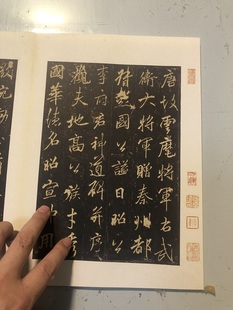 唐故雲麾將軍右武
衛大將軍贈秦州都
督彭國公謚曰昭公
李府君神道碑并序
觀夫地高公族才秀
國華德名昭宣
用